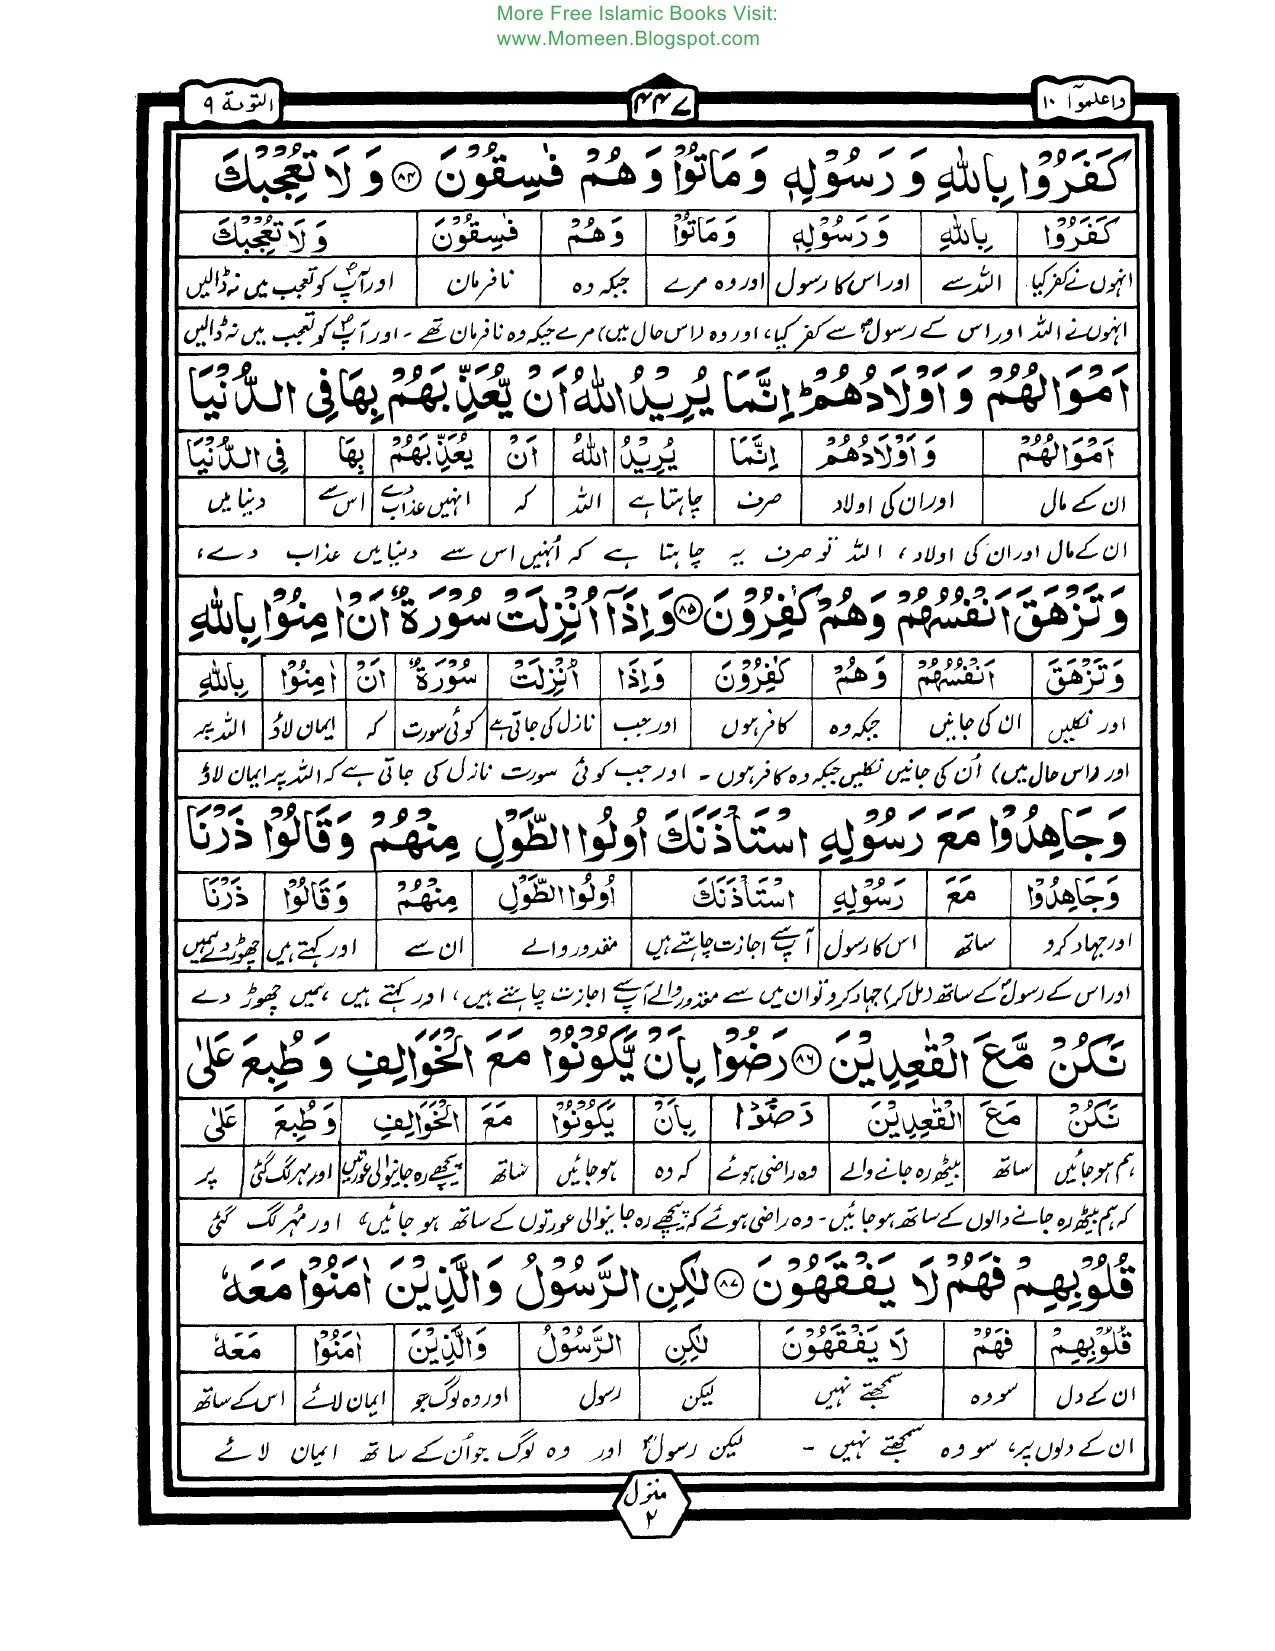 More Free Islamic Books Visit:
www.Momeen.Blogspot.com
واعلموآ ۱۰
۴۴۷
التوبة ۹
كَفَرُوْا بِاللّٰهِ وَ رَسُوْلِهٖ وَ مَاتُوْا وَ هُمْ فٰسِقُوْنَ ۝۸۴ وَ لَا تُعْجِبْكَ
كَفَرُوْا بِاللّٰهِ وَ رَسُوْلِهٖ وَ مَاتُوْا وَ هُمْ فٰسِقُوْنَ وَ لَا تُعْجِبْكَ
انہوں نے کفر کیا اللہ سے اور اس کا رسول اور وہ مرے جبکہ وہ نافرمان اور آپؐ کو تعجب میں نہ ڈالیں
انہوں نے اللہ اور اس کے رسولؐ سے کفر کیا، اور وہ (اس حال میں) مرے جبکہ وہ نافرمان تھے - اور آپؐ کو تعجب میں نہ ڈالیں
اَمْوَالُهُمْ وَ اَوْلَادُهُمْ ؕ اِنَّمَا يُرِيْدُ اللّٰهُ اَنْ يُّعَذِّبَهُمْ بِهَا فِى الدُّنْيَا
اَمْوَالُهُمْ وَ اَوْلَادُهُمْ اِنَّمَا يُرِيْدُ اللّٰهُ اَنْ يُعَذِّبَهُمْ بِهَا فِى الدُّنْيَا
ان کے مال اور ان کی اولاد صرف چاہتا ہے اللہ کہ انہیں عذاب دے اس سے دنیا میں
ان کے مال اور ان کی اولاد، اللہ تو صرف یہ چاہتا ہے کہ اُنہیں اس سے دنیا میں عذاب دے،
وَ تَزْهَقَ اَنْفُسُهُمْ وَ هُمْ كٰفِرُوْنَ ۝۸۵ وَ اِذَاۤ اُنْزِلَتْ سُوْرَةٌ اَنْ اٰمِنُوْا بِاللّٰهِ
وَ تَزْهَقَ اَنْفُسُهُمْ وَ هُمْ كٰفِرُوْنَ وَ اِذَا اُنْزِلَتْ سُوْرَةٌ اَنْ اٰمِنُوْا بِاللّٰهِ
اور نکلیں ان کی جانیں جبکہ وہ کافر ہوں اور جب نازل کی جاتی ہے کوئی سورت کہ ایمان لاؤ اللہ پر
اور (اس حال میں) اُن کی جانیں نکلیں جبکہ وہ کافر ہوں - اور جب کوئی سورت نازل کی جاتی ہے کہ اللہ پر ایمان لاؤ
وَ جَاهِدُوْا مَعَ رَسُوْلِهِ اسْتَاْذَنَكَ اُولُوا الطَّوْلِ مِنْهُمْ وَ قَالُوْا ذَرْنَا
وَ جَاهِدُوْا مَعَ رَسُوْلِهِ اسْتَاْذَنَكَ اُولُوا الطَّوْلِ مِنْهُمْ وَ قَالُوْا ذَرْنَا
اور جہاد کرو ساتھ اس کا رسول آپ سے اجازت چاہتے ہیں مقدور والے ان سے اور کہتے ہیں چھوڑ دے ہمیں
اور اس کے رسولؐ کے ساتھ (مل کر) جہاد کرو تو ان میں سے مقدور والے آپؐ سے اجازت چاہتے ہیں، اور کہتے ہیں ہمیں چھوڑ دے
نَكُنْ مَّعَ الْقٰعِدِيْنَ ۝۸۶ رَضُوْا بِاَنْ يَّكُوْنُوْا مَعَ الْخَوَالِفِ وَ طُبِعَ عَلٰى
نَكُنْ مَعَ الْقٰعِدِيْنَ رَضُوْا بِاَنْ يَكُوْنُوْا مَعَ الْخَوَالِفِ وَ طُبِعَ عَلٰى
ہم ہو جائیں ساتھ بیٹھ رہ جانے والے وہ راضی ہوئے کہ وہ ہو جائیں ساتھ پیچھے رہ جانیوالی عورتیں اور مہر لگ گئی پر
کہ ہم بیٹھ رہ جانے والوں کے ساتھ ہو جائیں - وہ راضی ہوئے کہ پیچھے رہ جانیوالی عورتوں کے ساتھ ہو جائیں، اور مُہر لگ گئی
قُلُوْبِهِمْ فَهُمْ لَا يَفْقَهُوْنَ ۝۸۷ لٰكِنِ الرَّسُوْلُ وَ الَّذِيْنَ اٰمَنُوْا مَعَهٗ
قُلُوْبِهِمْ فَهُمْ لَا يَفْقَهُوْنَ لٰكِنِ الرَّسُوْلُ وَ الَّذِيْنَ اٰمَنُوْا مَعَهٗ
ان کے دل سو وہ سمجھتے نہیں لیکن رسول اور وہ لوگ جو ایمان لائے اس کے ساتھ
ان کے دلوں پر، سو وہ سمجھتے نہیں - لیکن رسولؐ اور وہ لوگ جو اُن کے ساتھ ایمان لائے
منزل
۲